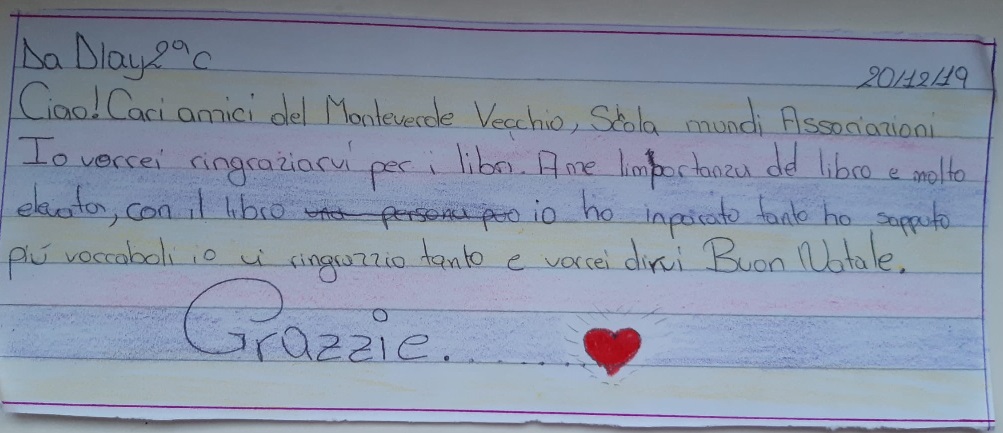 Da Dlay 2ªC
20/12/19
Ciao! Cari amici del Monteverde Vecchio, Scola mundi Associazioni
Io vorrei ringraziarvi per i libri. A me limportanza del libro e molto
elevator, con il libro una persona può io ho inparato tanto ho sapputo
piú voccaboli io vi ringrazzio tanto e vorrei dirvi Buon Natale.
Grazzie.......